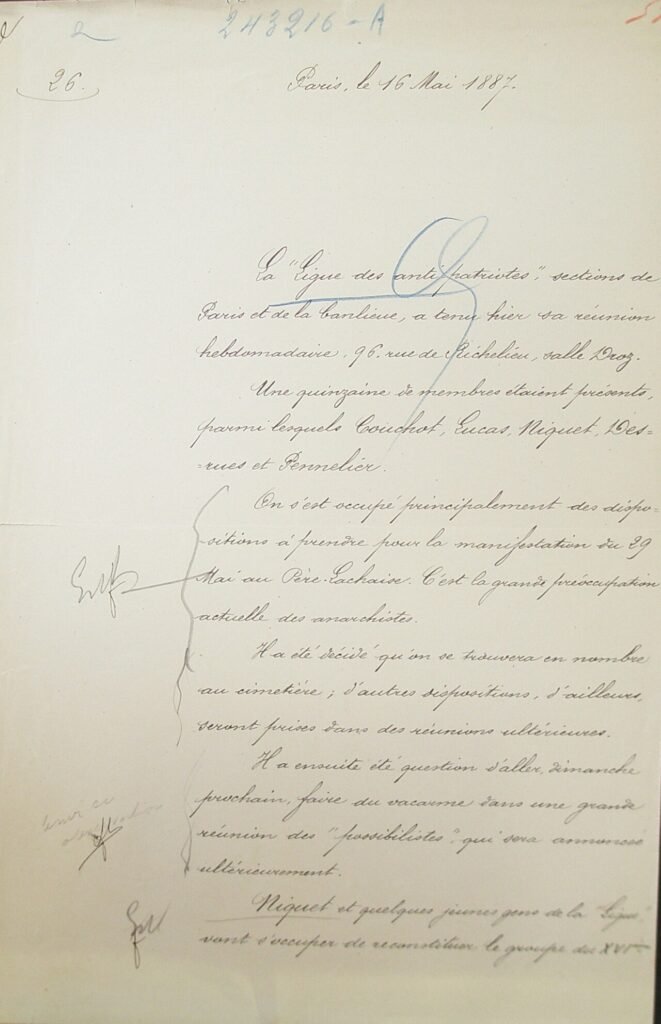 243216-A
26.
Paris, le 16 Mai 1887.
La "Ligue des antipatriotes", sections de
Paris et de la banlieue, a tenu hier sa réunion
hebdomadaire, 96, rue de Richelieu, salle Droz.
Une quinzaine de membres étaient présents,
parmi lesquels Couchot, Lucas, Niquet, Des-
=rues et Pennelier.
On s'est occupé principalement des dispo=
sitions à prendre pour la manifestation du 29
Mai au Père-Lachaise. C'est la grande préoccupation
actuelle des anarchistes.
Il a été décidé qu'on se trouvera en nombre
au cimetière ; d'autres dispositions, d'ailleurs,
seront prises dans des réunions ultérieures.
Il a ensuite été question d'aller, dimanche
prochain, faire du vacarme dans une grande
réunion des "possibilistes", qui sera annoncée
ultérieurement.
Niquet et quelques jeunes gens de la "Ligue"
vont s'occuper de reconstituer le groupe du XVIme